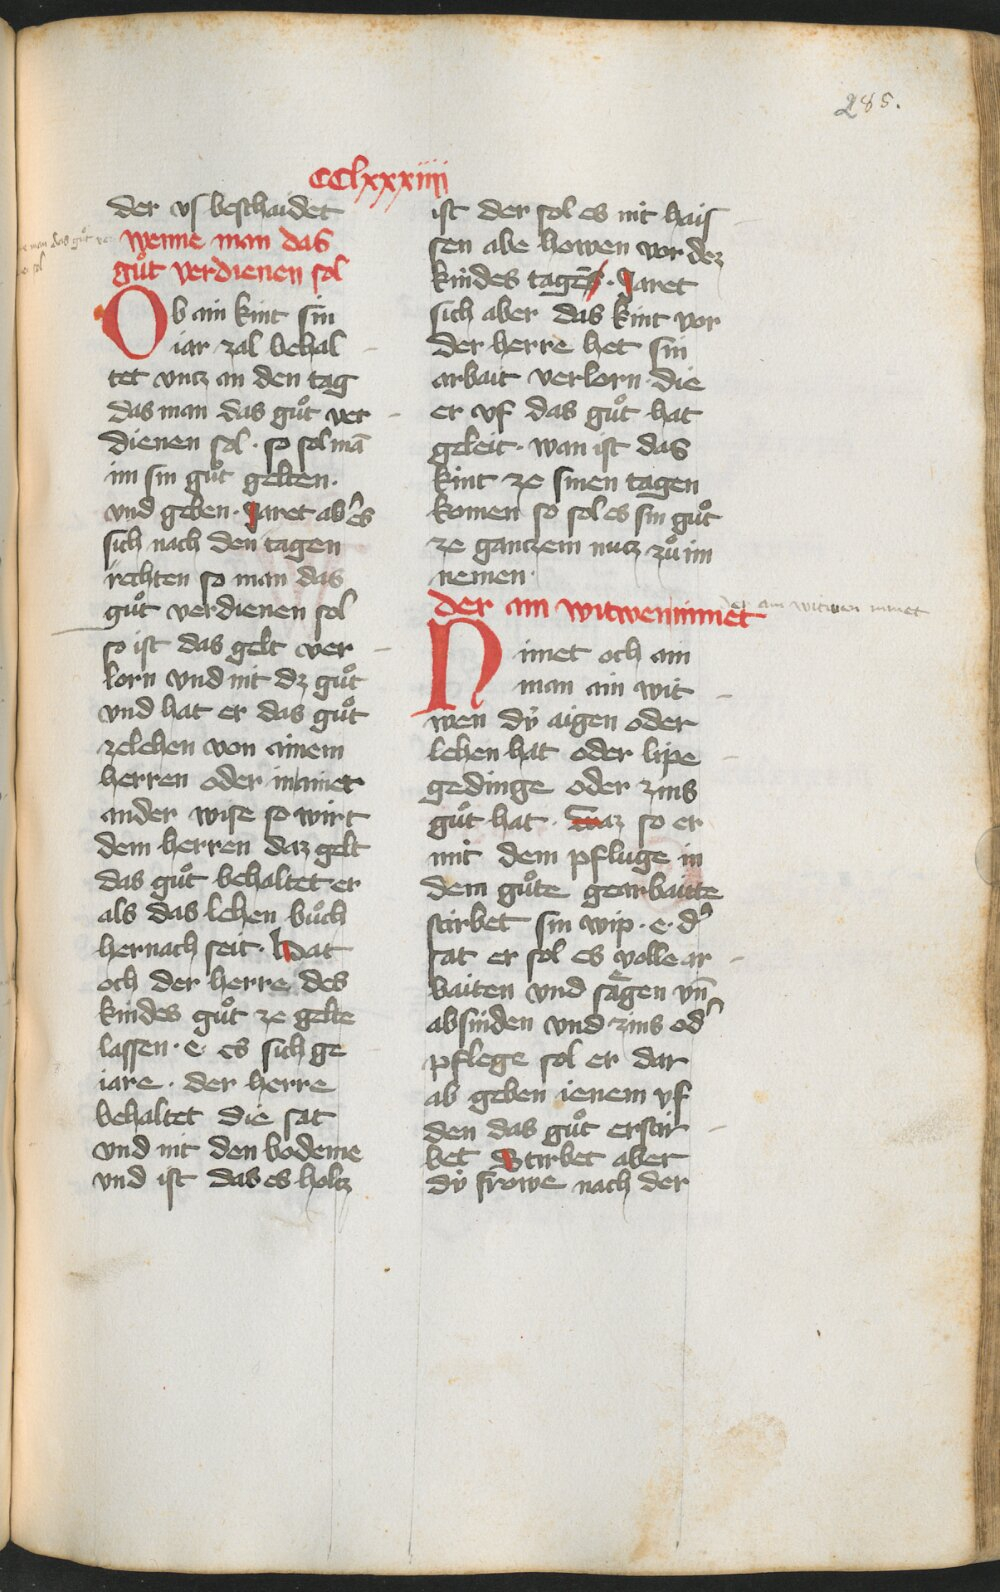 285.
CClxxxiiii
der vs beschaidet
wenne man das
guͦt verdienen sol
Ob ain kint sin
iar zal behal-
tet vncz an den tag
das man das guͦt ver-
dienen sol · so sol mā
im sin guͦt gelten ·
vnd geben · Jaret ab͛ es
sich nach den tagen
rechten so man das
guͦt verdienen sol
so ist das gelt ver-
lorn vnd nit dz guͦt
vnd hat er das guͦt
zelehen von ainem
herren oder in ainer
ander wise so wirt
dem herren daz gelt
das guͦt behaltet er
als das lehen buͦch
hernach seit · Hat
och der herre des
kindes guͦt ze gelte
lassen · e · es sich ge
iare · der herre
behaltet die sat
vnd nit den bodeme
vnd ist das es holtz
ist der sol es nit hais-
sen abe howen vor dez
kindes tagē · Jaret
sich aber das kint vor
der herre het sin
arbait verlorn · die
er vf das guͦt hat
geleit · wan ist das
kint ze sinen tagen
komen so sol es sin guͦt
ze gantzem nutz zuͦ im
nemen ·
der ain witwen nimet
der ain witiwen nimet
Nimet och ain
man ain wit-
wen dÿ aigen oder
lehen hat oder lipe-
gedinge oder zins
guͦt hat · Waz so er
mit dem pfluge in
dem guͦte gearbaitte
stirbet sin wip · e · d͛
sat er sol es volle ar-
baiten vnd sägen vn̄
absniden vnd zins od͛
pflege sol er dar
ab geben ienem vf
den das guͦt erstir-
bet Stirbet aber
dÿ frowe nach der